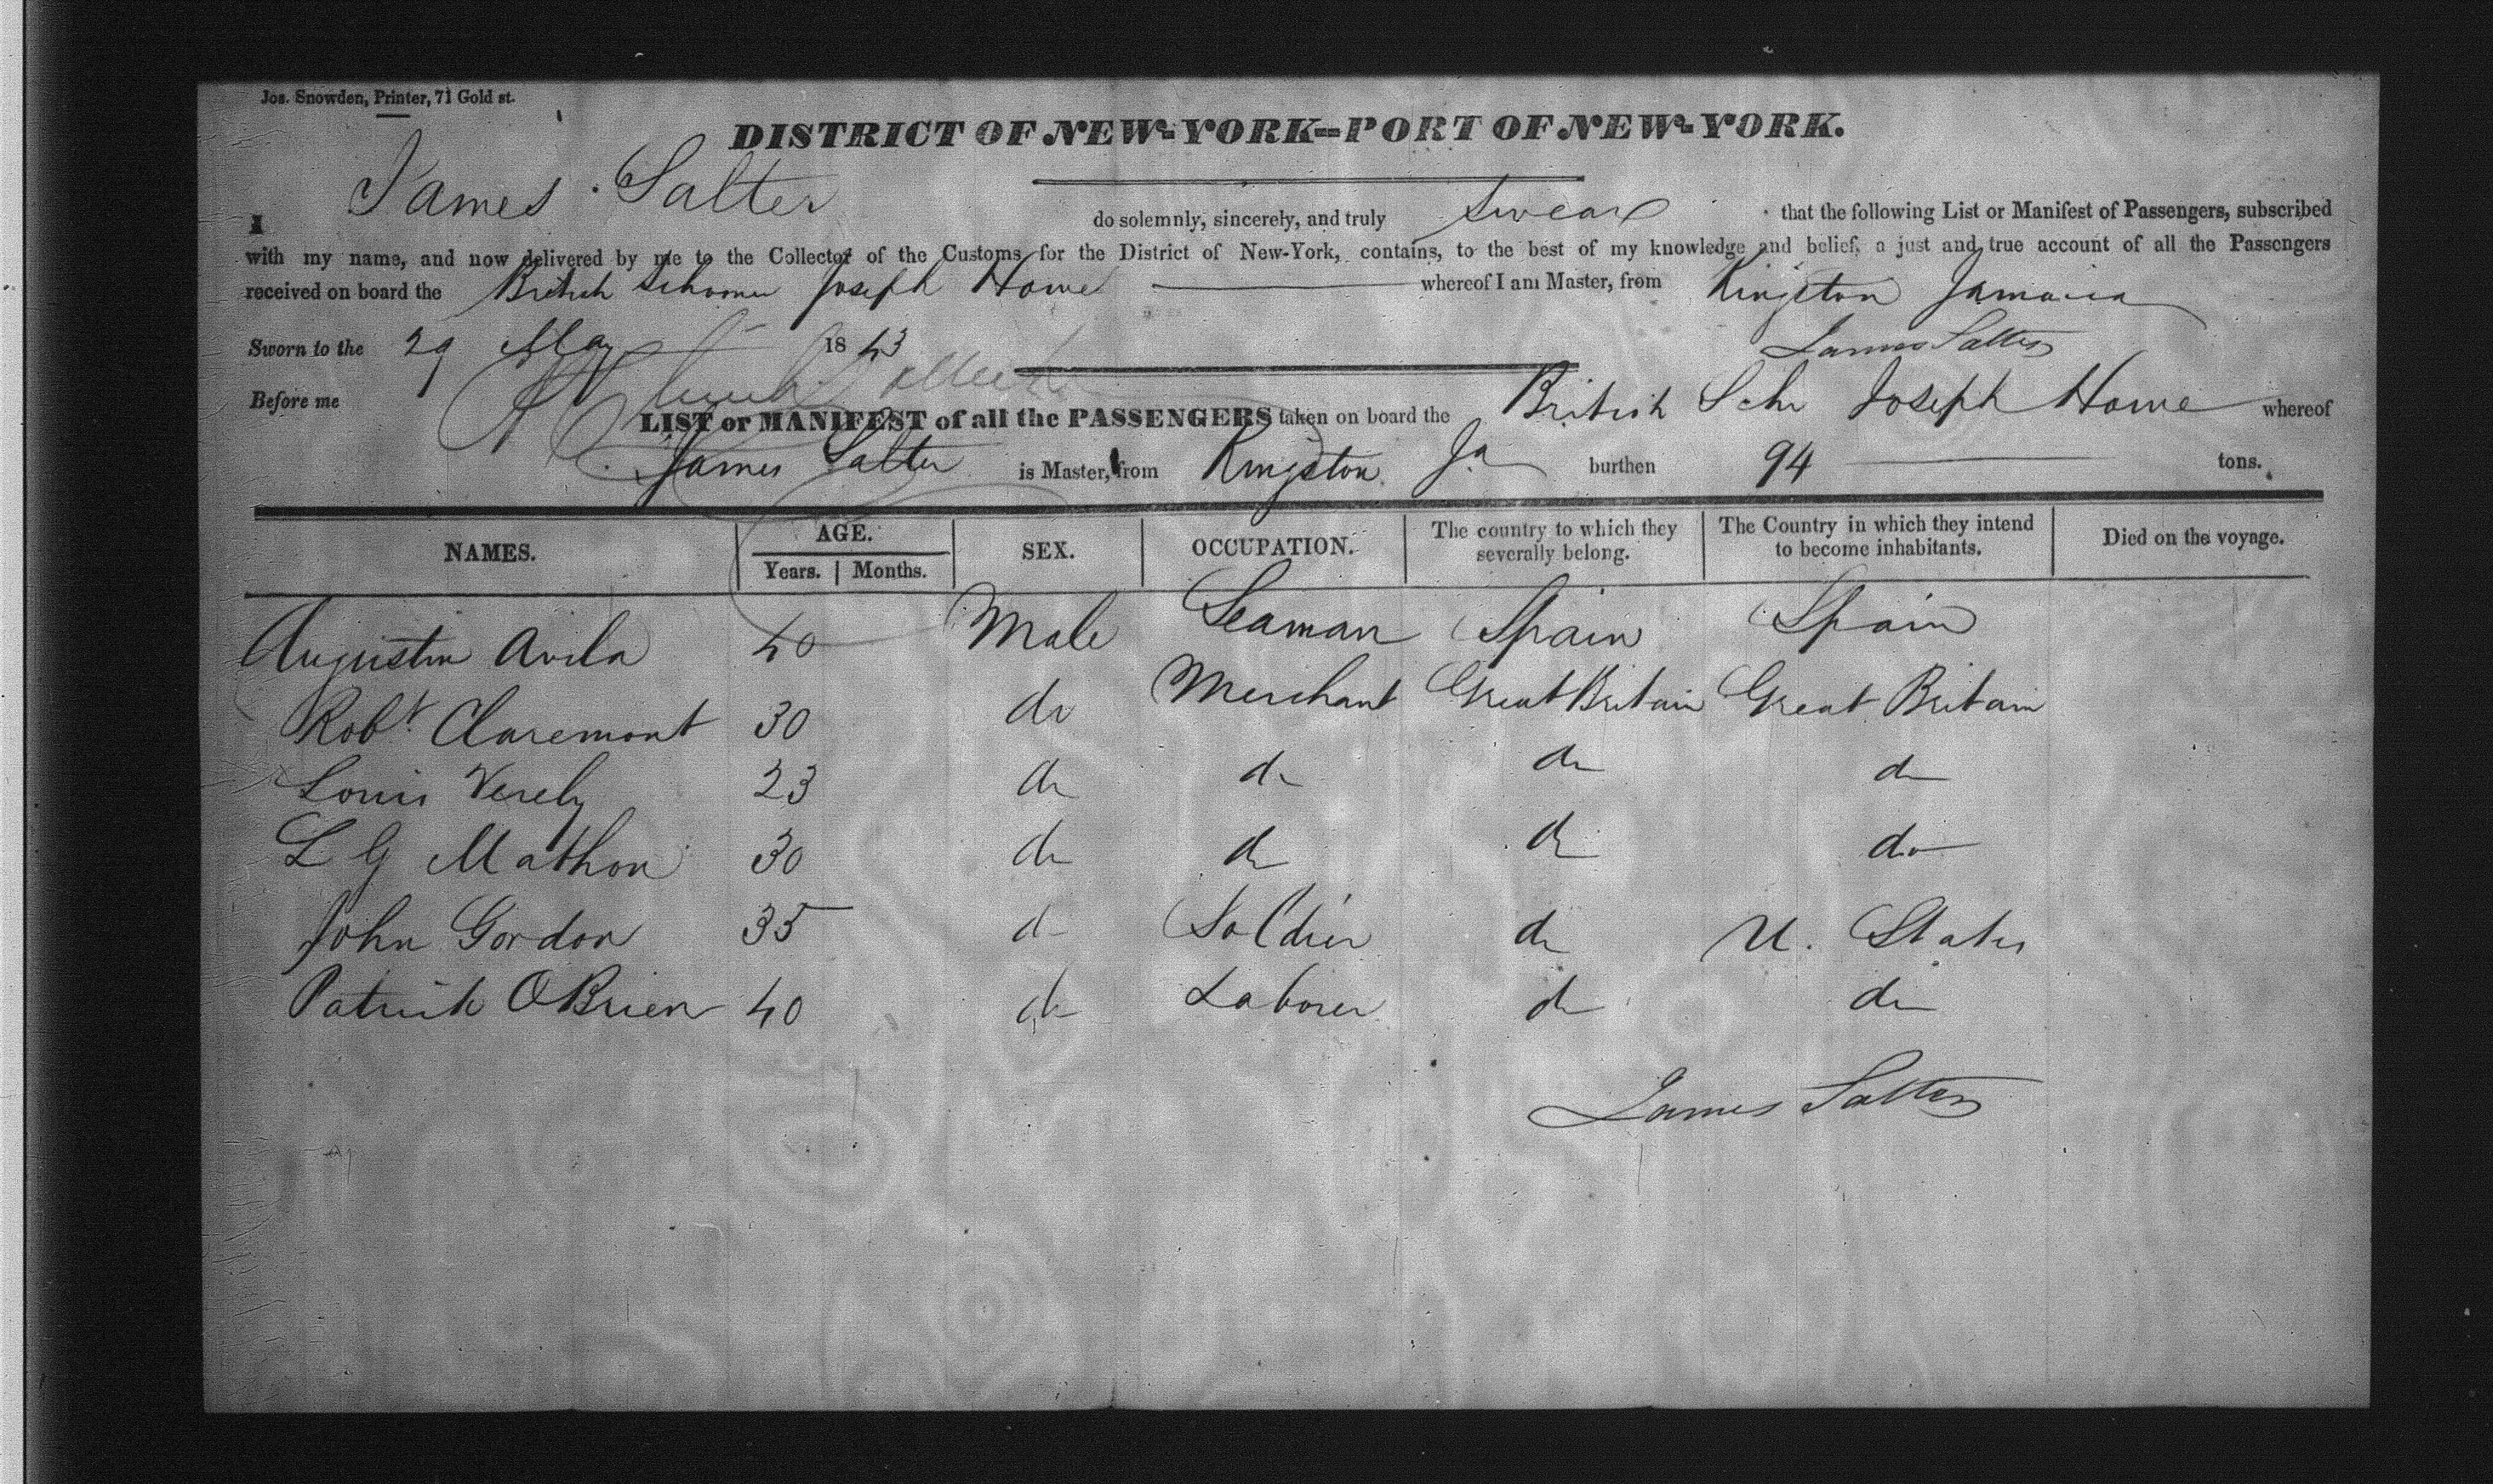 Jos. Snowden, Printer, 71 Gold st.
DISTRICT OF NEW-YORK--PORT OF NEW-YORK.
I James Salter do solemnly, sincerely, and truly swear that the following List or Manifest of Passengers, subscribed
with my name, and now delivered by me to the Collector of the Customs for the District of New-York, contains, to the best of my knowledge and belief, a just and true account of all the Passengers
received on board the British Schooner Joseph Howe whereof I am Master, from Kingston Jamaica
Sworn to the 29 May 1843 James Salter
Before me
LIST or MANIFEST of all the PASSENGERS taken on board the British Schr Joseph Howe whereof
James Salter is Master, from Kingston Ja burthen 94 tons.
NAMES. AGE. Years. Months. SEX. OCCUPATION. The country to which they severally belong. The Country in which they intend to become inhabitants. Died on the voyage.
Augustin Avila 40 Male Seaman Spain Spain
Robt. Claremont 30 do Merchant Great Britain Great Britain
Louis Verely 23 do do do do
L G Mathon 30 do do do do
John Gordon 35 do Soldier do U. States
Patrick OBrien 40 do Laborer do do
James Salter